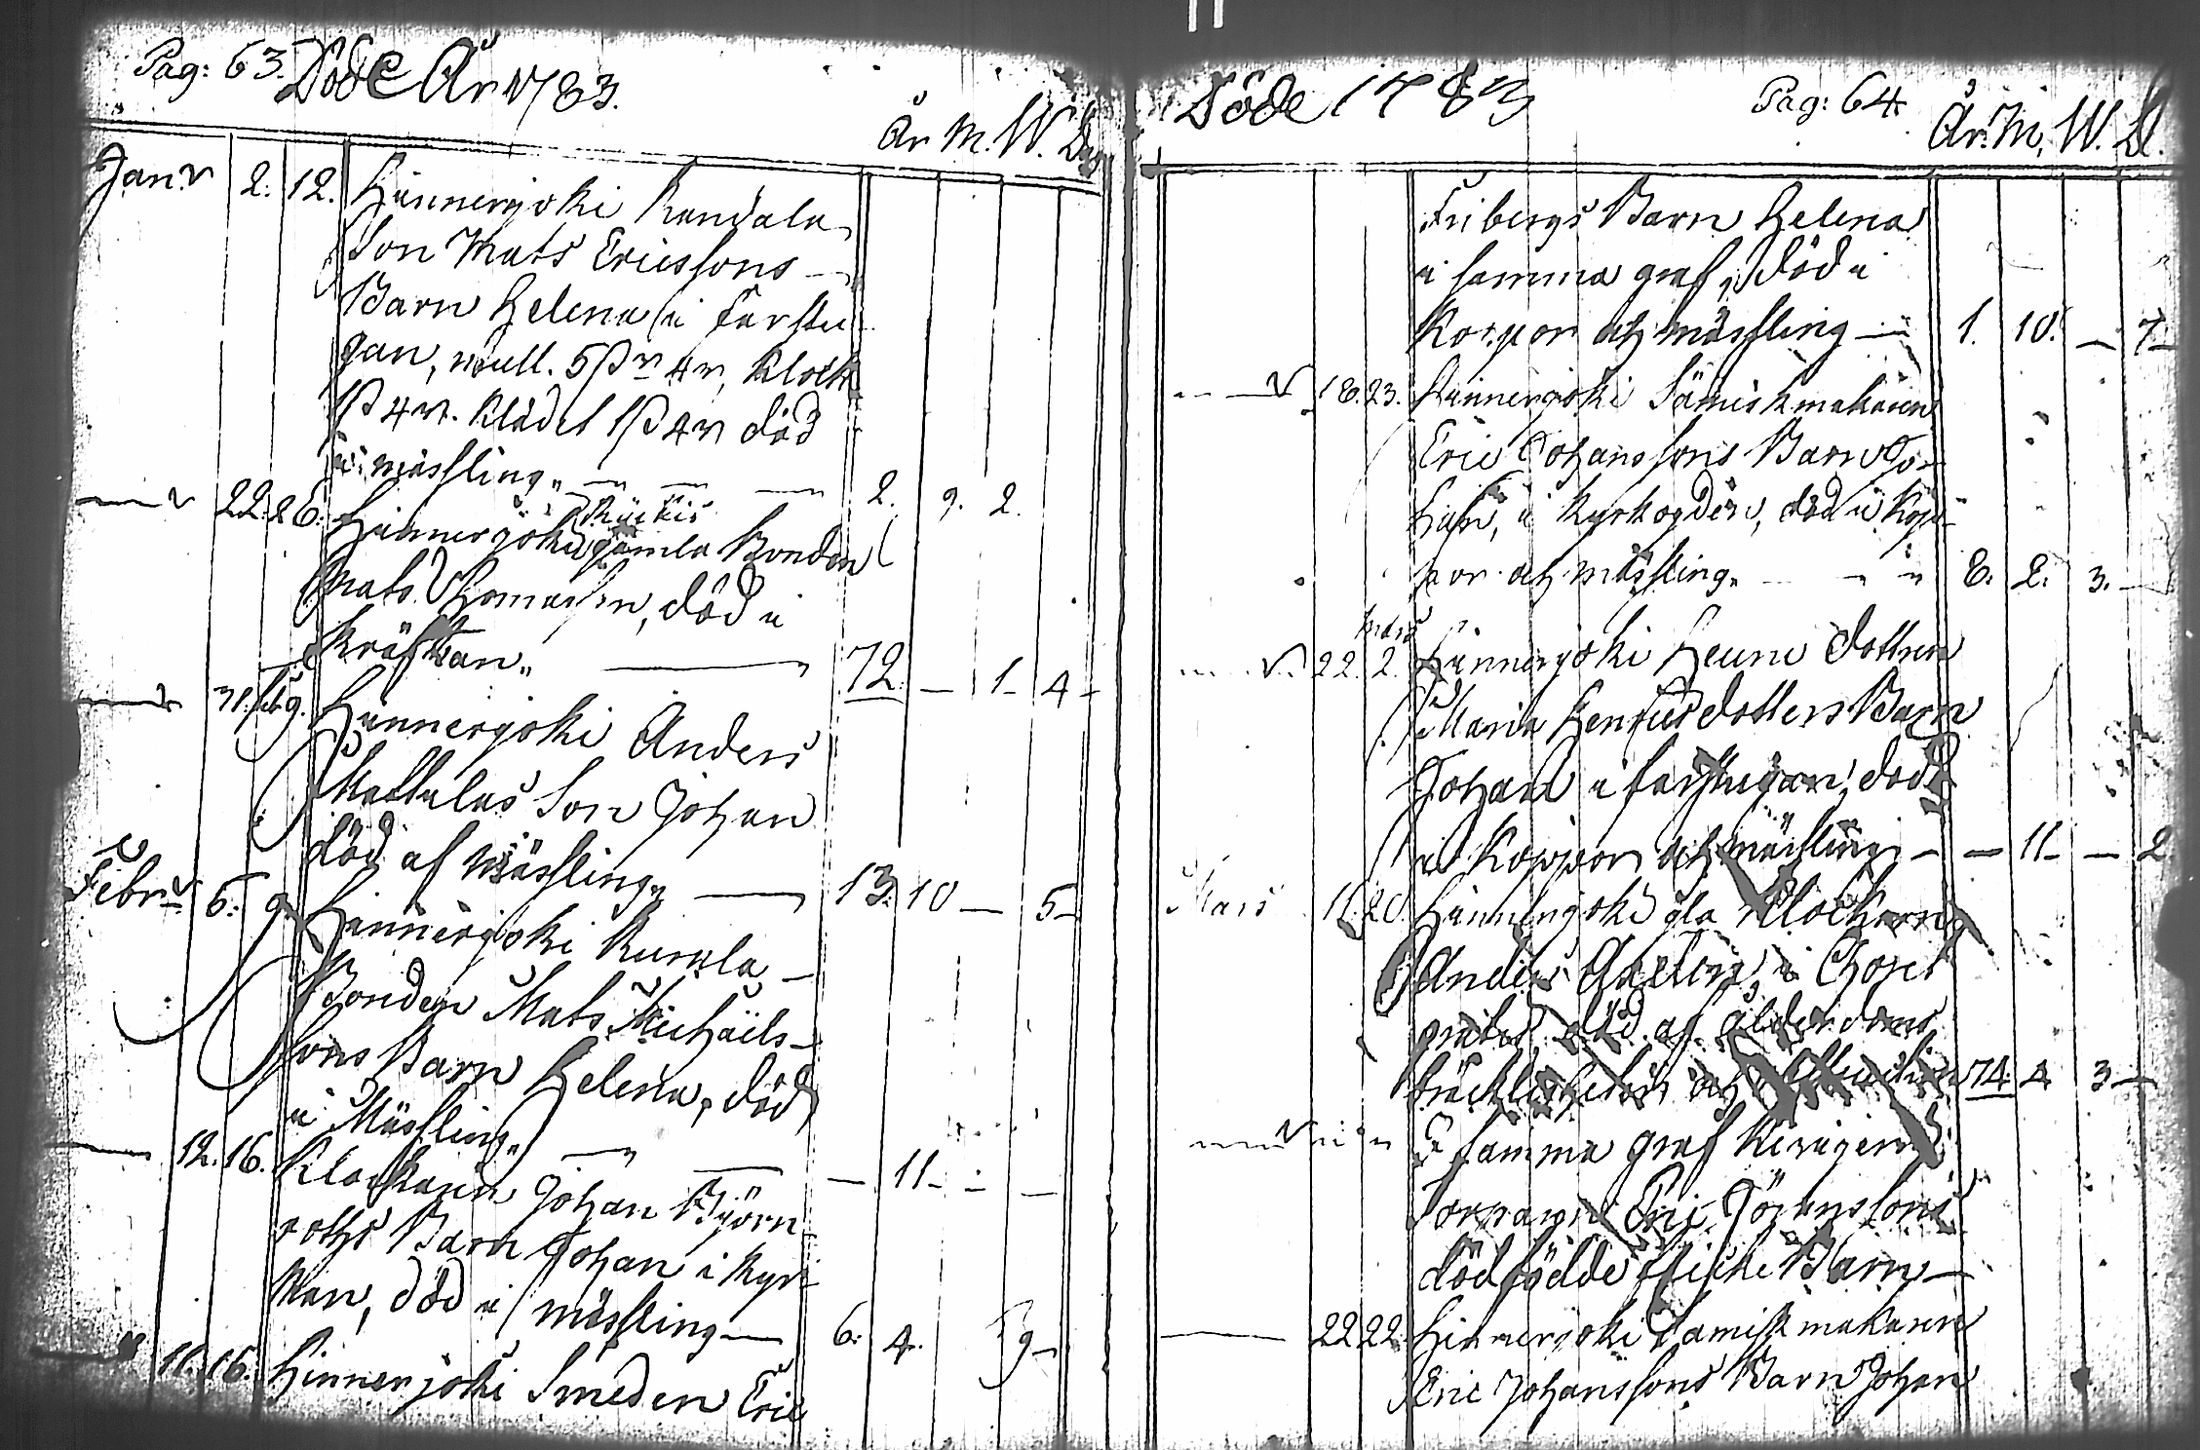 Pag: 63. Döde År 1783.
År M. W. Dag
Janr 2. 12. Hinnerjoki Kandala
Son Mats Ericssons
Barn Helena i Farstu
gan, mull. 5 P 4 r, Klock
1 P 4 r. Klädet 1 P 4 r död
i mässling 2. 9. 2.
22. 26. Hinnerjoki gamla Bonden
Mats Thomasson, död i
kräftan 72 — 1 — 4 —
31. feb 9. Hinnerjoki Anders
Mattulas Son Johan
död af mässling 13. 10 — 5 —
Febr. 6. 9. Hinnerjoki
Bonden Mats Michaels-
sons Barn Helena, död
i Mässling — 11 — —
12. 16. Klockaren Johan Björn
roths Barn Johan i Kyr
kan, död i mässling — 6. 4. 9 —
11. 16. Hinnerjoki Smeden Eric
Döde 1783 Pag: 64
År. M. W. D.
Fribergs Barn Helena
i samma graf, död i
Koppor och mässling — 1. 10. — 7
18. 23. Hinnerjoki Sämiskmakaren
Eric Johanssons Barn Jo-
han, i Kyrkogården, död i Kop-
por och mässling 8. 2. 3. —
Mars
22. 2. Hinnerjoki dottren
Maria Henricsdotters Barn
Johan i farstugan, död
i Koppor och mässling — — 11 — — 2
Mars 20. Hinnerjoki gla Klockaren
Anders Axelin, i Choret
död af ålderdoms
bräcklighet och 74. 4 3 —
I samma graf
Eric Jöransson
dödfödde flicke Barn —
22 22. Hinnerjoki Sämiskmakaren
Eric Johanssons Barn Johan